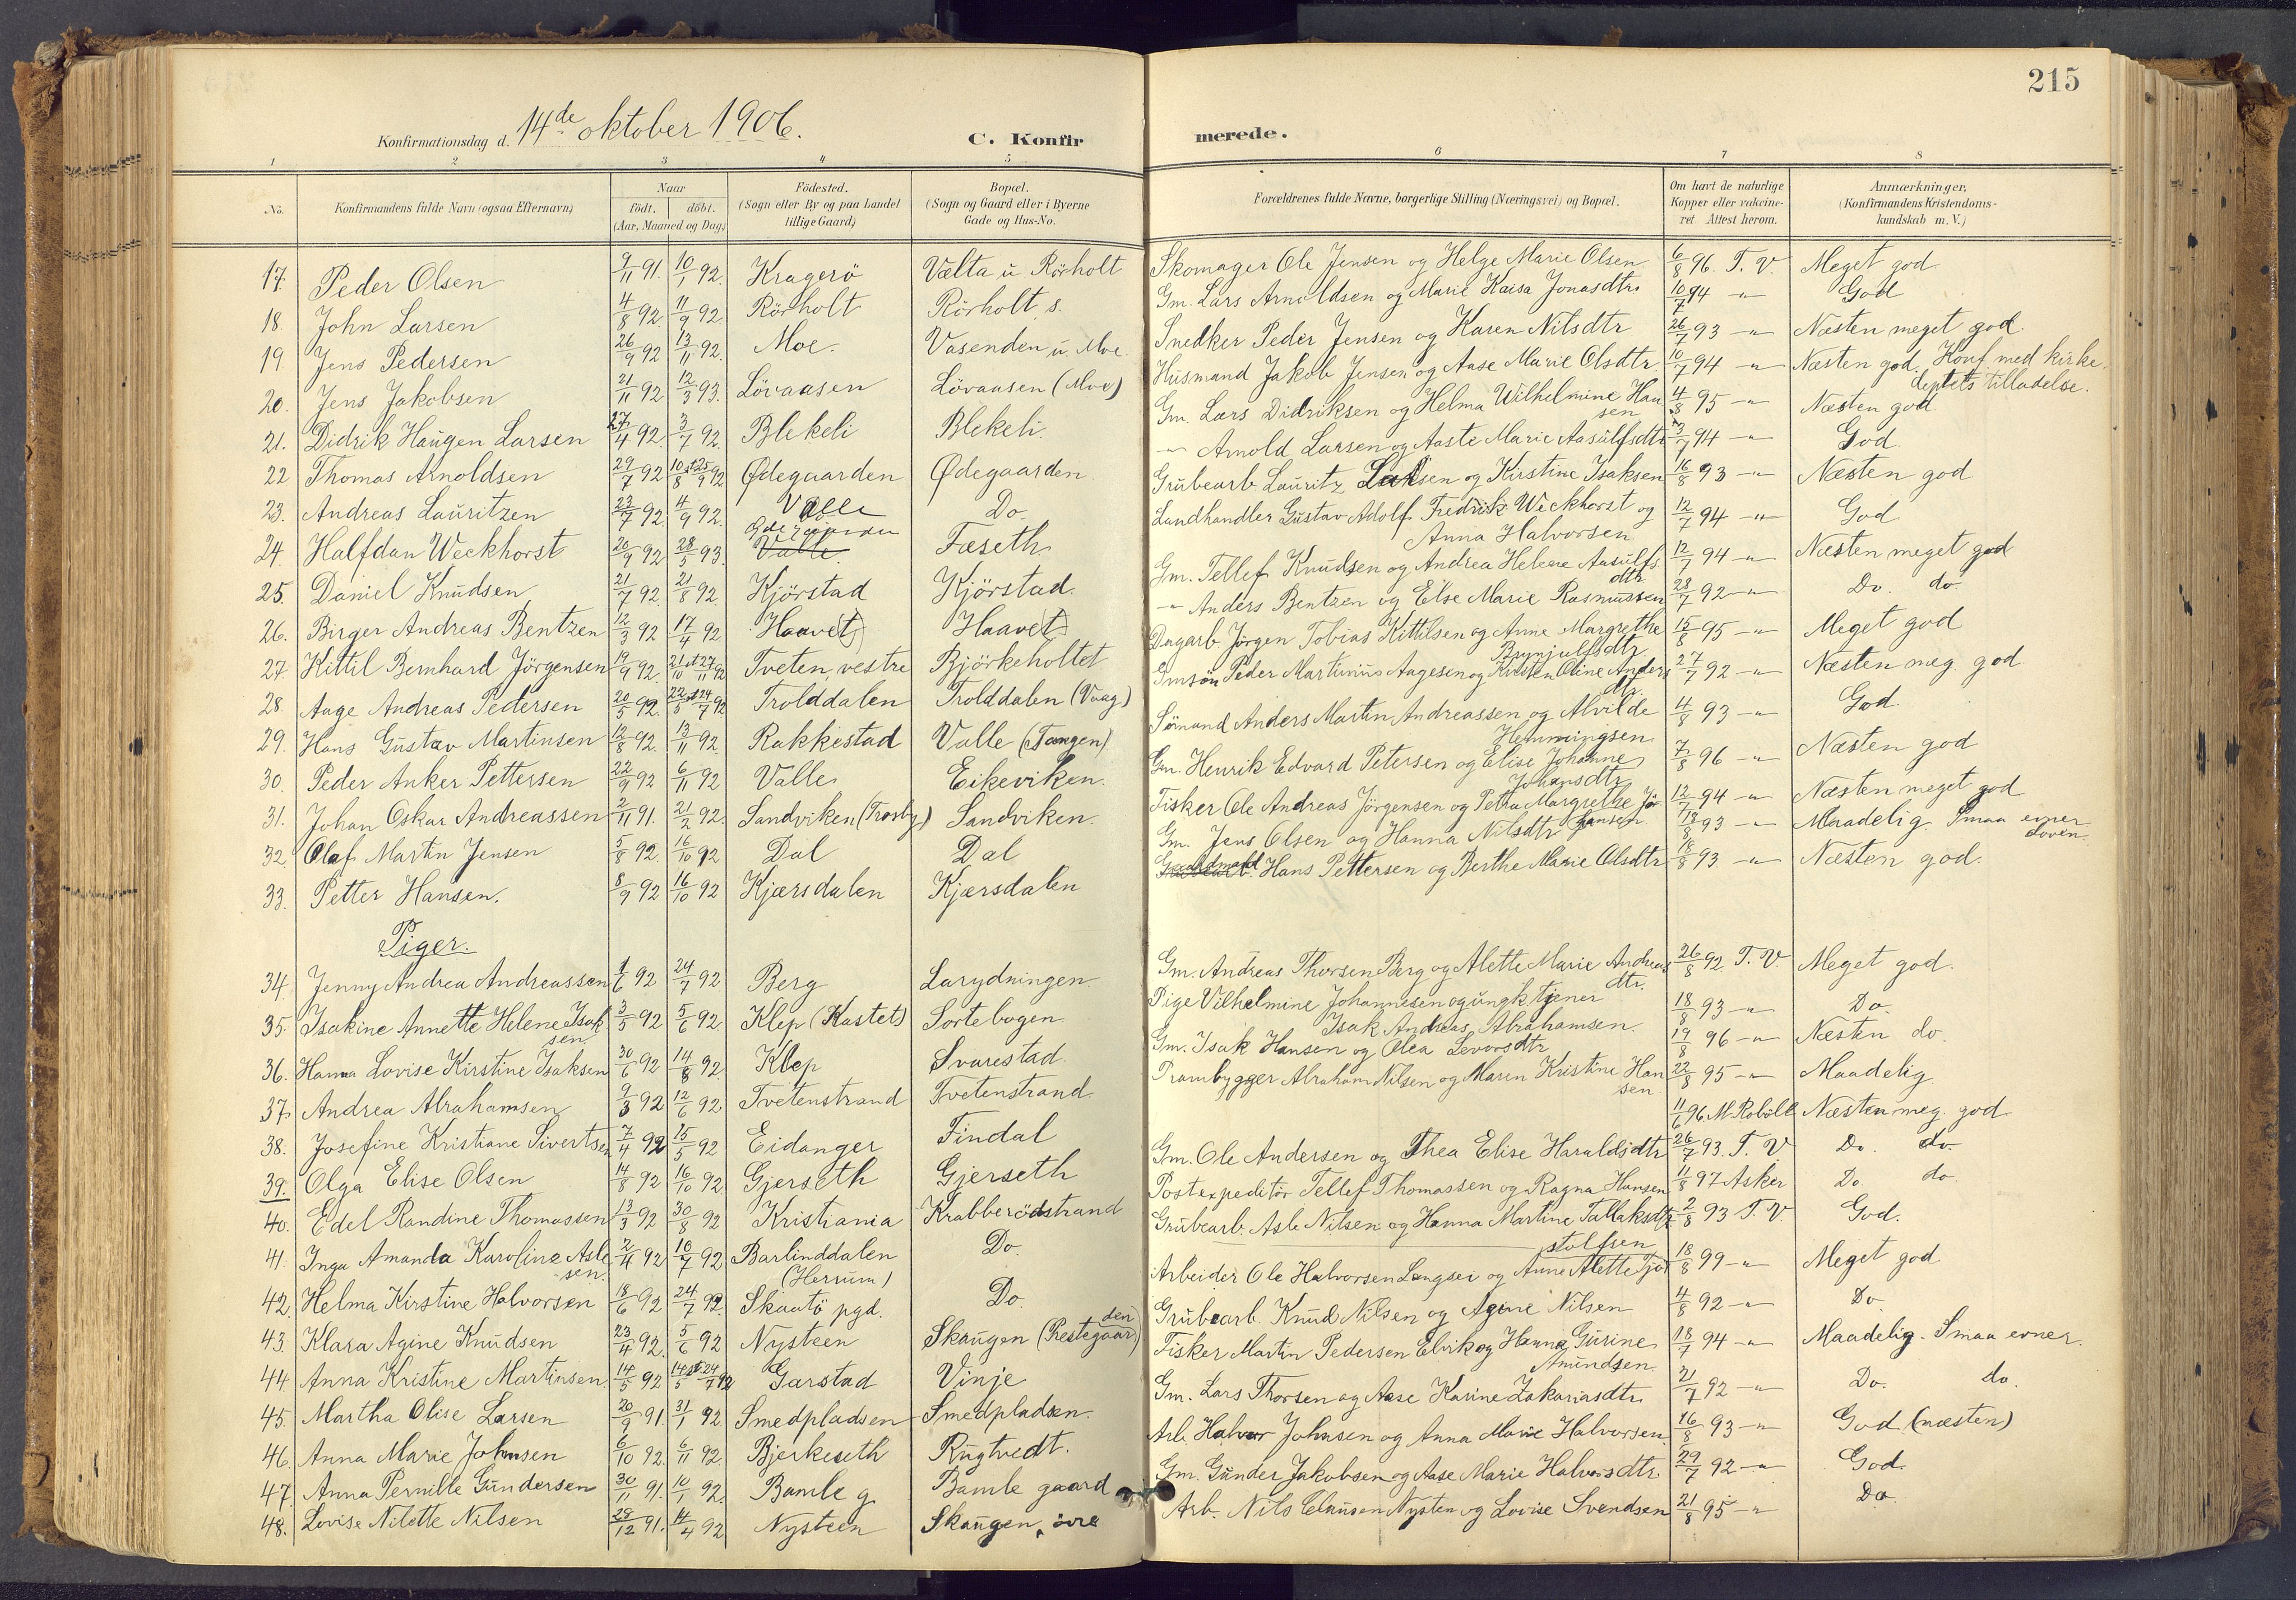 215
Konfirmationsdag d. 14de oktober 1906.
C. Konfirmerede.
1 2 3 4 5 6 7 8
No. | Konfirmandens fulde Navn (ogsaa Efternavn) | Naar födt. döbt. (Aar, Maaned og Dag) | Födested. (Sogn eller By og paa Landet tillige Gaard) | Bopæl. (Sogn og Gaard eller i Byerne Gade og Hus-No. | Forældrenes fulde Navne, borgerlige Stilling (Næringsvei) og Bopæl. | Om havt de naturlige Kopper eller vakcineret Attest herom. | Anmærkninger. (Konfirmandens Kristendomskundskab m. V.)
17. Peder Olsen 9/11 91. 10/1 92. Kragerö Vælta u. Rörholt Skomager Ole Jensen og Helge Marie Olsen 6/8 96. T. V. Meget god
18. John Larsen 4/8 92 11/9 92 Rörholt Rörholt s. Gm. Lars Arnoldsen og Marie Kaisa Jonasdtr 10/7 94 -"- God
19 Jens Pedersen 26/9 92 13/11 92. Moe. Vasenden u. Moe. Snedker Peder Jensen og Karen Nilsdtr 26/7 93 -"- Næsten meget god.
20. Jens Jakobsen 21/11 92 12/3 93. Lövaasen Lövaasen (Moe) Husmand Jakob Jensen og Aase Marie Olsdtr. 10/7 94 -"- Næsten god. Konf. med kirkedeptets tilladelse.
21. Didrik Haugen Larsen 27/4 92. 3/7 92. Blekeli Blekeli. Gm. Lars Didriksen og Helma Wilhelmine Hansen 4/8 95 -"- Næsten god
22 Thomas Arnoldsen 29/7 92 10/8 st 25/9 92 Ødegaarden Ødegaarden -"- Arnold Larsen og Aaste Marie Aasulfsdtr 3/7 94 -"- God
23. Andreas Lauritzen 23/7 92 4/9 92. Valle Ödegaarden Do. Grubearb. Lauritz Larsen og Kirstine Isaksen 16/8 93 -"- Næsten god
24. Halfdan Weckhorst 20/9 92 28/5 93. Valle. Fæseth Landhandler Gustav Adolf Fredrik Weckhorst og Anna Halvorsen 12/7 94 -"- God
25. Daniel Knudsen 21/7 92 21/8 92. Kjörstad Kjörstad. Gm. Tellef Knudsen og Andrea Helene Aasulfsdtr 12/7 94 -"- Næsten meget god
26. Birger Andreas Bentzen 12/3 92 17/4 92 Haavet Haavet -"- Anders Bentzen og Else Marie Rasmussen 28/7 92 -"- Do. do.
27. Kittil Bernhard Jörgensen 19/9 92. 21/10 st 27/11 92 Tveten, vestre Björkeholtet Dagarb. Jörgen Tobias Kittilsen og Anne Margrethe Brynjulfsdtr 15/8 95 -"- Meget god
28. Aage Andreas Pedersen 20/5 92. 22/5 st 24/7 92 Trolddalen Trolddalen (Vaag) Gmsön Peder Martinius Aagesen og Kirsten Oline Andersdtr. 27/7 92 -"- Næsten meg. god
29. Hans Gustav Martinsen 12/8 92. 13/11 92. Rakkestad Valle (Tangen) Sömand Anders Martin Andreassen og Alvilde Hemmingsen 4/8 93 -"- God
30. Peder Anker Pettersen 22/9 92 6/11 92 Valle Eikeviken. Gm. Henrik Edvard Petersen og Elise Johanne Johansdtr 7/8 96 -"- Næsten god
31. Johan Oskar Andreassen 2/11 91. 21/2 92. Sandviken (Trosby) Sandviken. Fisker Ole Andreas Jörgensen og Petra Margrethe Jörgensen 12/7 94 -"- Næsten meget god
32. Olaf Martin Jensen 5/8 92. 16/10 92 Dal Dal Gm. Jens Olsen og Hanna Nilsdtr 18/8 93 -"- Maadelig Smaa evner. doven.
33. Petter Hansen. 8/9 92 16/10 92 Kjærsdalen Kjærsdalen Hans Pettersen og Berthe Marie Olsdtr 18/8 93. -"- Næsten god.
Piger.
34. Jenny Andrea Andreassen 1/6 92 24/7 92. Berg Larydningen Gm. Andreas Thorsen Berg og Alette Marie Andreasdtr. 26/8 92 T. V. Meget god.
35. Isakine Annette Helene Isaksen 3/5 92 5/6 92. Klep (Kastet) Sortebogen Pige Vilhelmine Johannesen og ungk. tjener Isak Andreas Abrahamsen. 18/8 93 -"- Do.
36. Hanna Lovise Kirstine Isaksen 30/6 92 14/8 92. Klep Svarestad Gm. Isak Hansen og Olea Levorsdtr 19/8 96 -"- Næsten do.
37. Andrea Abrahamsen 9/3 92 12/6 92 Tvetenstrand Tvetenstrand Prambygger Abraham Nilsen og Maren Kristine Hansen 22/8 95 -"- Maadelig
38. Josefine Kristiane Sivertsen 7/4 92 15/5 92 Eidanger Findal 11/6 96. M. Roböle Næsten meg. god
39. Olga Elise Olsen 14/8 92 16/10 92. Gjerseth Gjerseth Gm. Ole Andersen og Thea Elise Haraldsdtr 26/7 93. T. V. Do. do.
40. Edel Randine Thomassen 13/3 92 30/8 92 Kristiania Krabberödstrand Postexpeditör Tellef Thomassen og Ragna Hansen 11/8 97 Asker Do. do
41. Inga Amanda Karoline Aslesen 2/4 92 10/7 92. Barlinddalen (Herrum) Do. Grubearb. Asle Nilsen og Hanna Martine Tallaksdtr 2/8 93 T. V. God.
42. Helma Kirstine Halvorsen 18/6 92 24/7 92. Skaatö pgd. Do. Arbeider Ole Halvorsen Langsei og Anne Alette Tjostolfsen 18/8 99 -"- Meget god
43. Klara Agine Knudsen 23/4 92. 5/6 92 Nysteen Skaugen (Prestegaarden) Grubearb. Knud Nilsen og Agine Nilsen 4/8 92 -"- Do.
44. Anna Kristine Martinsen. 14/5 92 14/5 st 24/7 92 Garstad Vinje Fisker Martin Pedersen Elvik og Hanna Gurine Amundsen. 18/7 94 -"- Maadelig. Smaa evner.
45. Martha Olise Larsen 20/9 91. 31/1 92 Smedpladsen Smedpladsen. Gm. Lars Thorsen og Aase Karine Zakariasdtr 21/7 92 -"- Do. do.
46. Anna Marie Johnsen 6/10 92. 6/11 92. Bjerkeseth Rugtvedt. Arb. Halvor Johnsen og Anna Marie Halvorsen. 16/8 93 -"- God (næsten)
47. Anna Pernille Gundersen 30/11 91. 10/1 92. Bamle g. Bamle gaard Gm. Gunder Jakobsen og Aase Marie Halvorsdtr. 29/7 92 -"- God
48. Lovise Nilette Nilsen 29/12 91. 14/4 92. Nysteen Skaugen, övre Arb. Nils Clausen Nysten og Lovise Svendsen 21/8 95 -"- Do.